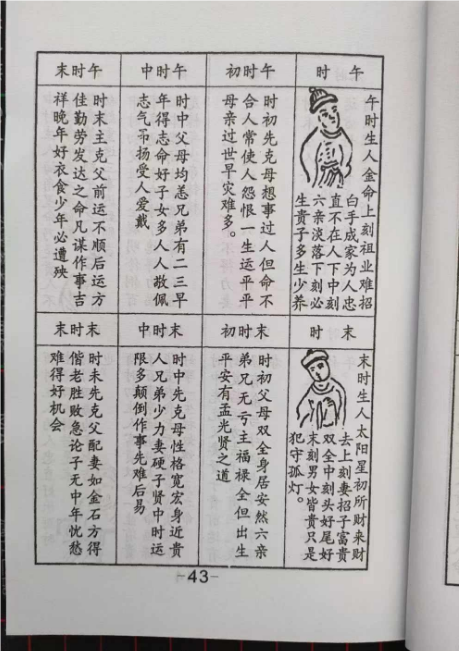 午时
午时生人金命上刻祖业难招
白手成家为人忠
直不在人下中刻
六亲淡落下刻必
生贵子多生少养
午时初
时初先克母想事过人但命不
合人常使人怨恨一生运平平
母亲过世早灾难多。
午时中
时中父母均恙兄弟有二三早
年得志命好子女多人人敬佩
志气吊扬受人爱戴
午时末
时末主克父前运不顺后运方
佳勤劳发达之命凡谋作事吉
祥晚年好衣食少年必遭殃
末时
末时生人太阳星初所财来财
去上刻妻招子富贵
双全中刻头好尾好
末刻男女皆贵只是
犯守孤灯。
末时初
时初父母双全身居安然六亲
弟兄无亏主福禄全但出生
平安有孟光贤之道
末时中
时中先克母性格宽宏身近贵
人兄弟少力妻硬子贤中时运
限多颠倒作事先难后易
末时末
时末先克父配妻如金石方得
偕老胜败急论子无中年忧愁
难得好机会
-43-